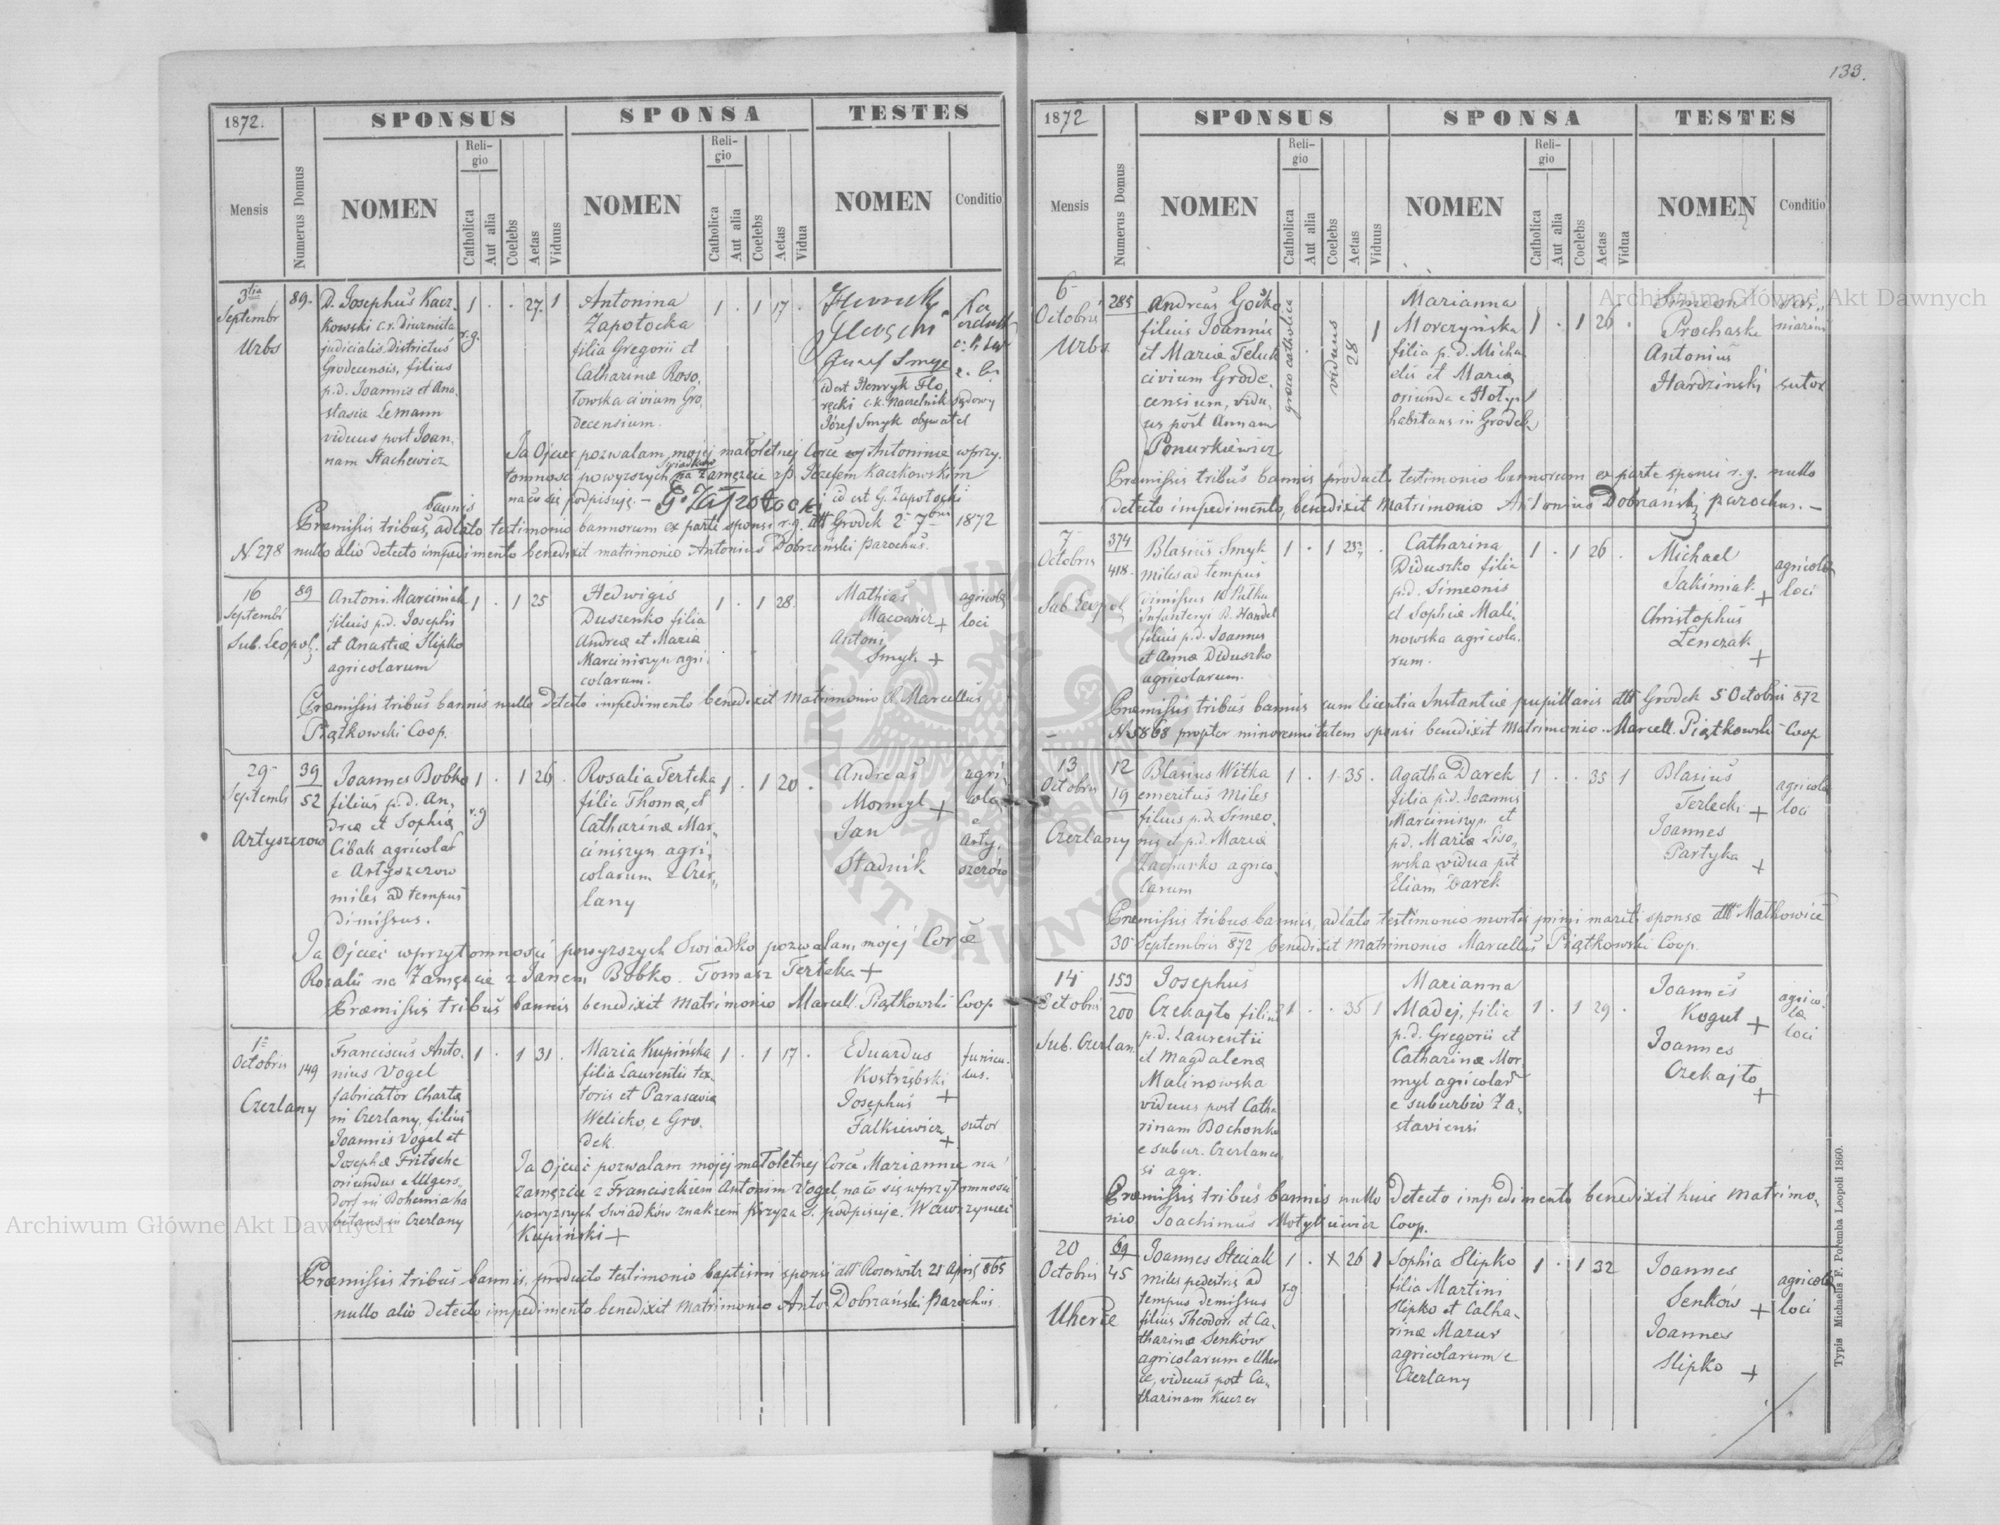 133.
1872.
SPONSUS
SPONSA
TESTES
Mensis
Numerus Domus
NOMEN
Religio
Catholica
Aut alia
Coelebs
Aetas
Viduus
NOMEN
Religio
Catholica
Aut alia
Coelebs
Aetas
Vidua
NOMEN
Conditio
3tia
Septembr
Urbs
89.
D. Josephus Kacz-
kowski c.r. Diurnista
judicialis Districtus
Grodecensis, filius
p.d. Joannis et Ana-
stasia Lemann
viduus post Joan-
nam Stachewicz
1 . . 27. 1
r.g.
Antonina
Zapotocka
filia Gregorii et
Catharinæ Roso-
towska civium Gro-
decensium.
1 . 1 17 .
Józef Smyk
id est Henryk Flo
recki c.k. Naczelnik sądowy
Józef Smyk obywatel
Ja Ojciec pozwalam mojej małoletniej Córce Antoninie wprzy-
tomności powyższych świadków na zamęzcie z p. Józefem Kaczkowskim
na co się podpisuję. – G. Zapotocki id est G. Zapotocki
Præmissis tribus bannis, adlato testimonio bannorum ex parte sponsi r.g. ddto Grodek 2 7bris 1872
N 278 nullo alio detecto impedimento benedixit matrimonio Antonius Dobrzański parochus.
16
Septembri
Sub. Leopol.
89
Antoni Marciniak
filius p.d. Josephi
et Anastiæ Slipko
agricolarum
1 . 1 25
Hedwigis
Duszenko filia
Andreæ et Mariæ
Marciniszyn agri-
colarum.
1 . 1 28.
Mathias
Macowicz +
Antoni
Smyk +
agricolæ
loci
Præmissis tribus bannis nullo detecto impedimento benedixit Matrimonio R. Marcellus
Piątkowski Coop.
29
Septembr
Artyszczow
39
52
Joannes Bobko
filius p.d. An-
dreæ et Sophiæ
Cibak agricolar
e Artyszczow
miles ad tempus
dimissus.
1 . 1 26 .
r.g
Rosalia Terteka
filia Thomæ et
Catharinæ Mar-
ciniszyn agri-
colarum e Czer-
lany
1 . 1 20 .
Andreas
Mormyl +
Jan
Stadnik
agri-
colæ
e
Arty-
szczów
Ja Ojciec wprzytomności powyższych Swiadko pozwalam mojej Corce
Rozalii na Zamęzcie z Janem Bobko. Tomasz Terteka +
Præmissis tribus bannis benedixit matrimonio Marcell. Piątkowski Coop
1
Octobris
Czerlany
149
Franciscus Anto-
nius Vogel
fabricator Chartæ
in Czerlany, filius
Joannis Vogel et
Josephæ Fritsche
oriundus e Ulgers-
dorf in Bohemia ha-
bitans in Czerlany
1 . 1 31 .
Maria Kupińska
filia Laurentii tex-
toris et Parascevia
Welicko, e Gro-
dek.
1 . 1 17 .
Eduardus
Kostrzębski +
Josephus
Falkiewicz +
funicu-
lus.
sutor
Ja Ojciec pozwalam mojej małoletniej Córce Mariannie na
Zamęzcie z Franciszkiem Antonim Vogel, na co się wprzytomności
powyższych świadków znakiem krzyża S. podpisuje. Wawrzyniec
Kupiński +
Præmissis tribus bannis, producto testimonio baptismi sponsi ddto Rosewitz 21 April 865
nullo alio detecto impedimento benedixit matrimonio Anto Dobrzański parochus
1872
SPONSUS
SPONSA
TESTES
Mensis
Numerus Domus
NOMEN
Religio
Catholica
Aut alia
Coelebs
Aetas
Viduus
NOMEN
Religio
Catholica
Aut alia
Coelebs
Aetas
Vidua
NOMEN
Conditio
6
Octobris
Urbs
285
Andreas Gocko
filius Joannis
et Mariæ Teluk
civium Grode-
censium, vidu-
us post Annam
Ponurkiewicz
græco catholica
viduus
28
1
Marianna
Morczyńska
filia p.d. Micha-
elis et Mariæ
oriunda e Hoły
habitans in Grodek
1 . 1 26 .
Simeon
Prochaska
Antonius
Hardziński
sutor
Præmissis tribus bannis producto testimonio bannorum ex parte sponsi r.g. nullo
detecto impedimento, benedixit Matrimonio Antonius Dobrzański parochus. –
7
Octobris
Sub Leopol
374
418.
Blasius Smyk
miles ad tempus
dimissus 10 Pułku
Infanteryi B. Handel
filius p.d. Joannis
et Annæ Diduszko
agricolarum.
1 . 1 23
Catharina
Diduszko filia
p.d. Simeonis
et Sophiæ Mali-
nowska agricola-
rum.
1 . 1 26 .
Michael
Jakimiak +
Christophus
Lenczak +
agricolæ
loci
Præmissis tribus bannis cum licentia Instantiæ pupillaris ddto Grodek 5 Octobris 872
N 5868 propter minorennitatem sponsi benedixit Matrimonio. Marcell. Piątkowski Coop
13
Octobris
Czerlany
12
19
Blasius Witka
emeritus miles
filius p.d. Simeo-
nis et p.d. Mariæ
Zachurko agrico-
larum
1 . 1 . 35 .
Agatha Darek
filia p.d. Joannis
Marciniszyn et
p.d. Mariæ Liso-
wska vidua pst
Eliam Darek
1 . . 35 1
Blasius
Terlecki +
Joannes
Partyka +
agricolæ
loci
Præmissis tribus bannis, adlato testimonio mortis primi mariti sponsæ ddto Malkowice
30 Septembris 872 benedixit Matrimonio Marcellus Piątkowski Coop.
14
Octobris
Sub. Czerlan.
153
200
Josephus
Czekajto filius
p.d. Laurentii
et Magdalenæ
Malinowska
viduus post Catha-
rinam Bochonko
e subur. Czerlanen
si agr.
1 . . 35 1
Marianna
Madej, filia
p.d. Gregorii et
Catharinæ Mor-
myl agricolar
e suburbio Za-
staviensi
1 . 1 29 .
Joannes
Kogut +
Joannes
Czekajto +
agrico-
læ
loci
Præmissis tribus bannis nullo detecto impedimento benedixit huic matrimo-
nio Joachimus Motylkiewicz Coop.
20
Octobris
Uherce
69
45
Joannes Steciak
miles pedestris ad
tempus demissus
filius Theodori et Ca-
tharinæ Senków
agricolarum e Uher
ce, viduus post Ca-
tharinam Kuczer
1 . x 26 1
r.g
Sophia Slipko
filia Martini
Slipko et Catha-
rinæ Mazur
agricolarum e
Czerlany
1 . 1 32
Joannes
Senków +
Joannes
Slipko +
agricolæ
loci
Typis Michaelis F. Poremba Leopoli 1860.
Archiwum Główne Akt Dawnych
Archiwum Główne Akt Dawnych
ARCHIWUM GŁÓWNE AKT DAWNYCH